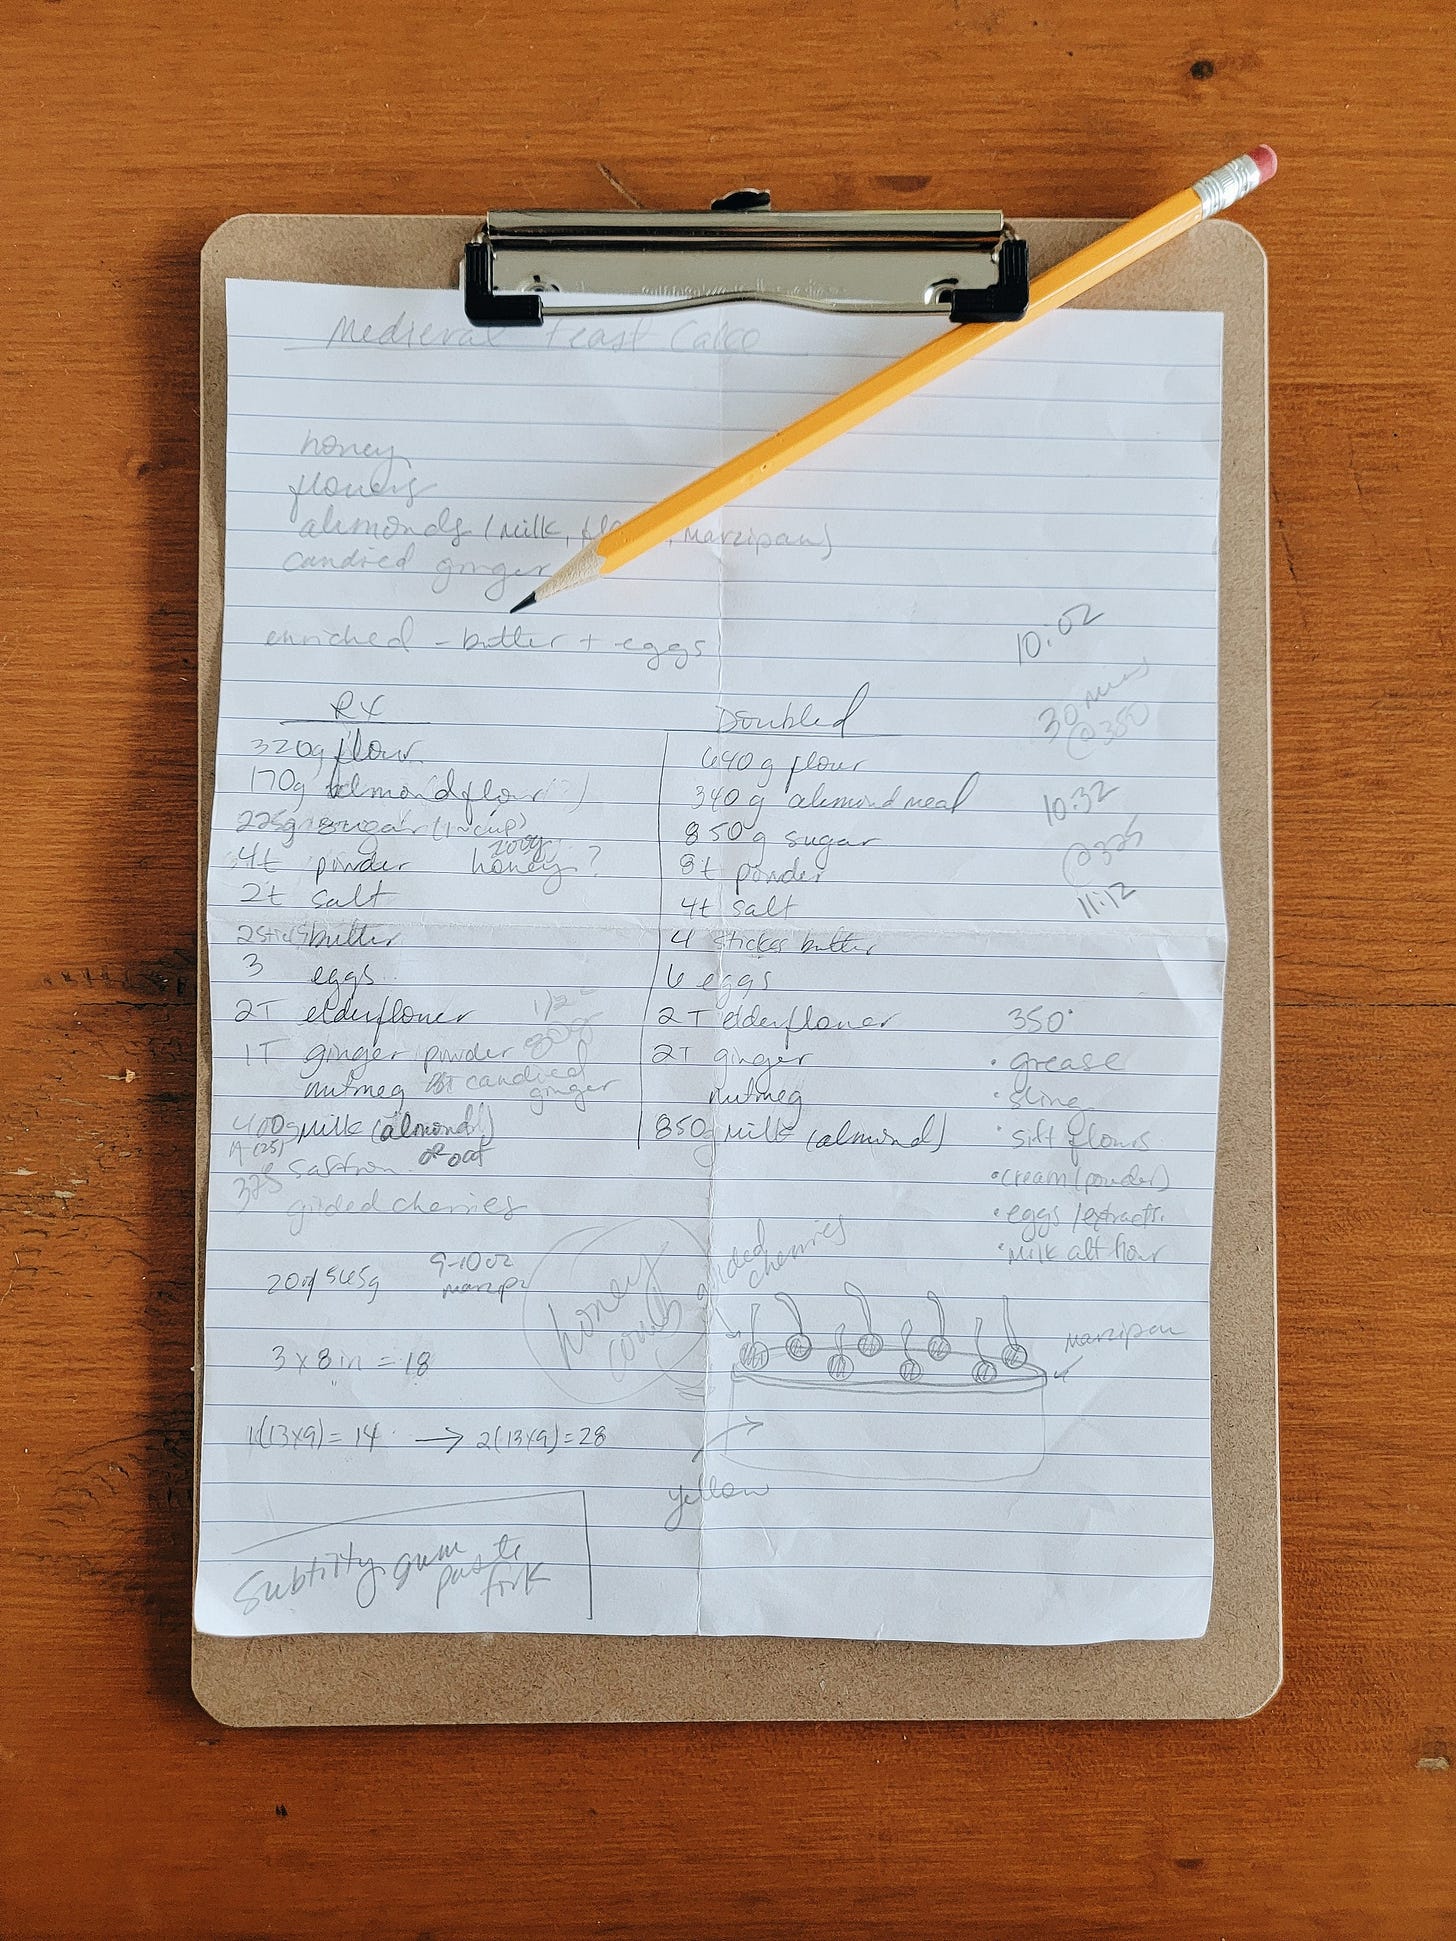 Medieval Feast Cake
honey
flowers
almonds (milk, marzipan)
candied ginger
enriched - butter + eggs
10:02
30 mins
@350
10:32
@325
11:12
RX
320g flour
170g almond flour
225g sugar (1 cup)
200g
4t powder honey?
2t salt
2 sticks butter
3 eggs
2T elderflower
1T ginger powder
nutmeg candied
ginger
400g milk (almond)
or oat
saffron
375
gilded cherries
Doubled
640g flour
340g almond meal
850g sugar
8t powder
4t salt
4 sticks butter
6 eggs
2T elderflower
2T ginger
nutmeg
850g milk (almond)
350°
• grease
• sling
• sift flours
• cream (powder)
• eggs/extracts
• milk alt flour
9-10oz
honey
comb
gilded
cherries
marzipan
yellow
3 x 8in = 18
1(13x9) = 14 → 2(13x9) = 28
Subtilty gum
paste
fork